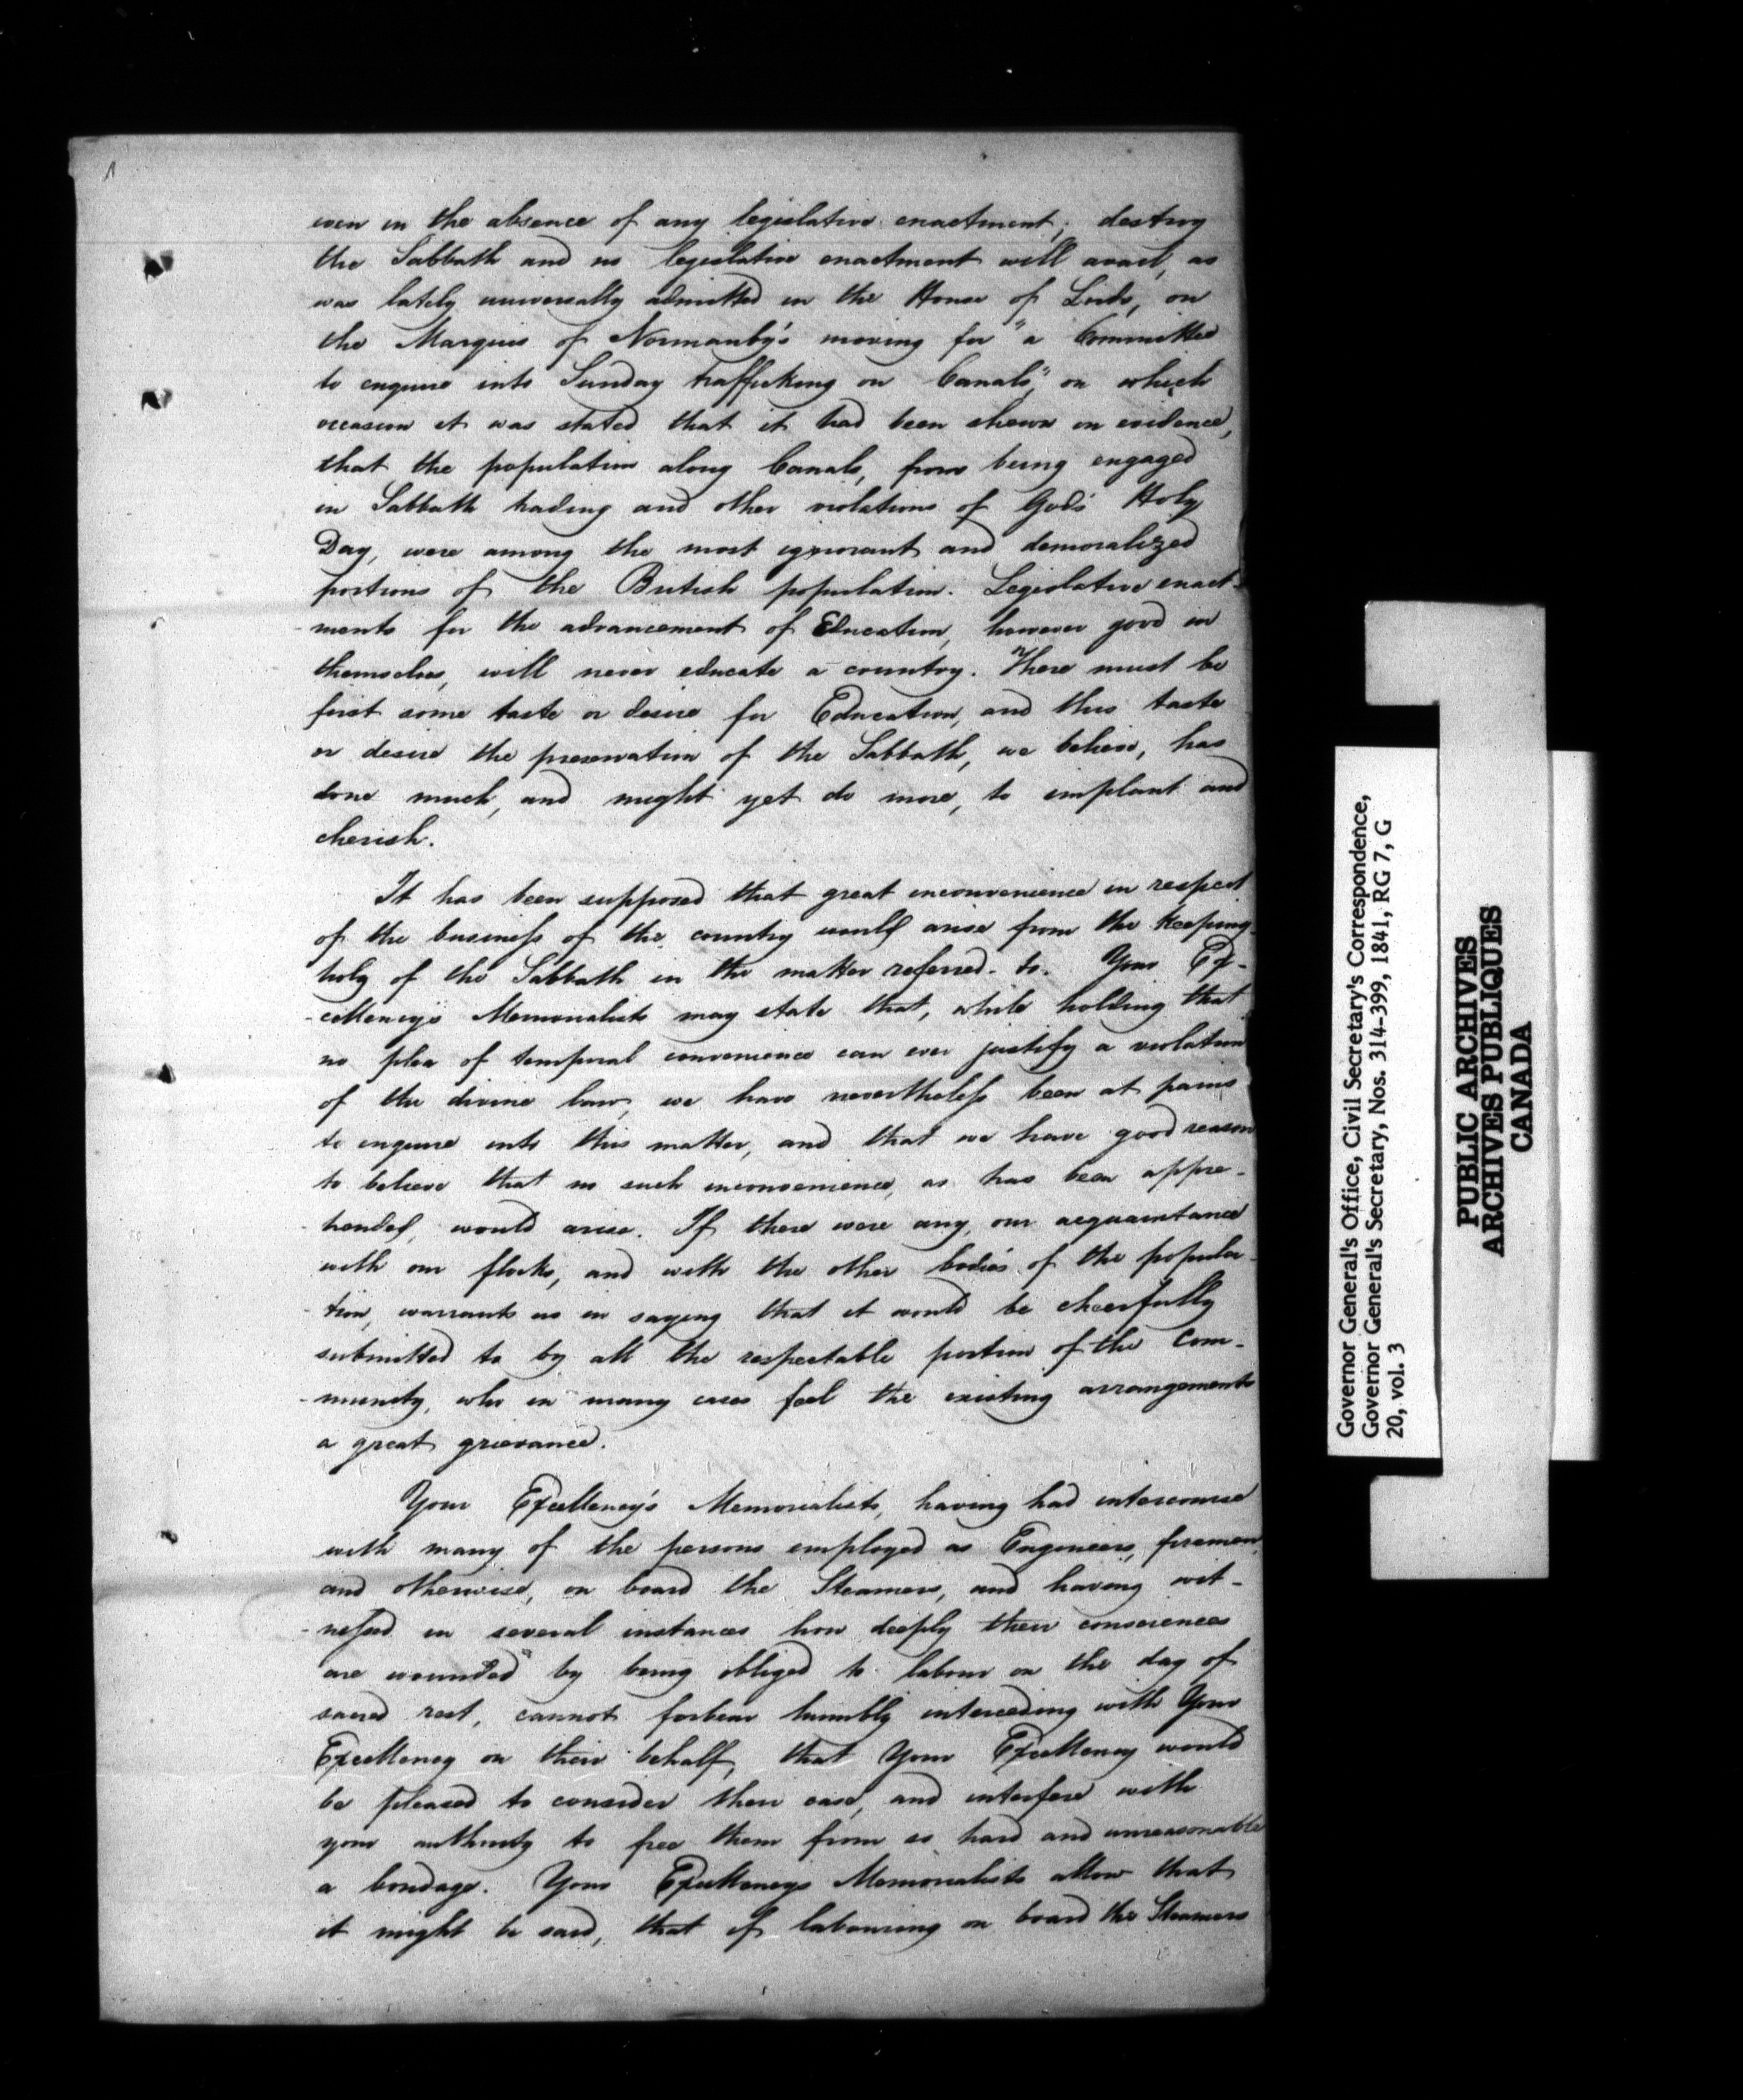 even in the absence of any legislative enactment; destroy
the Sabbath and no legislative enactment will avail, as
was lately universally admitted in the House of Lords, on
the Marquis of Normanby's moving for "a Committee
to enquire into Sunday trafficking on Canals," on which
occasion it was stated that it had been shewn in evidence,
that the population along Canals, from being engaged
in Sabbath trading and other violations of God's Holy
Day, were among the most ignorant and demoralized
portions of the British population. Legislative enact-
-ments for the advancement of Education, however good in
themselves, will never educate a country. There must be
first some taste or desire for Education, and this taste
or desire the preservation of the Sabbath, we believe, has
done much, and might yet do more, to implant and
cherish.
It has been supposed that great inconvenience in respect
of the business of the country would arise from the keeping
holy of the Sabbath in the matter referred to. Your Ex-
-cellency's Memorialists may state that, while holding that
no plea of temporal convenience can ever justify a violation
of the divine law, we have nevertheless been at pains
to enquire into this matter, and that we have good reason
to believe that no such inconvenience, as has been appre-
-hended, would arise. If there were any, our acquaintance
with our flocks, and with the other bodies of the popula-
-tion, warrants us in saying that it would be cheerfully
submitted to by all the respectable portion of the Com-
-munity, who in many cases feel the existing arrangements
a great grievance.
Your Excellency's Memorialists, having had intercourse
with many of the persons employed as Engineers, firemen,
and otherwise, on board the Steamers, and having wit-
-nessed in several instances how deeply their consciences
are wounded by being obliged to labour on the day of
sacred rest, cannot forbear humbly interceding with Your
Excellency on their behalf, that Your Excellency would
be pleased to consider their case, and interfere with
your authority to free them from so hard and unreasonable
a bondage. Your Excellency's Memorialists allow that
it might be said, that if labouring on board the Steamers
Governor General's Office, Civil Secretary's Correspondence,
Governor General's Secretary, Nos. 314-399, 1841, RG 7, G
20, vol. 3
PUBLIC ARCHIVES
ARCHIVES PUBLIQUES
CANADA